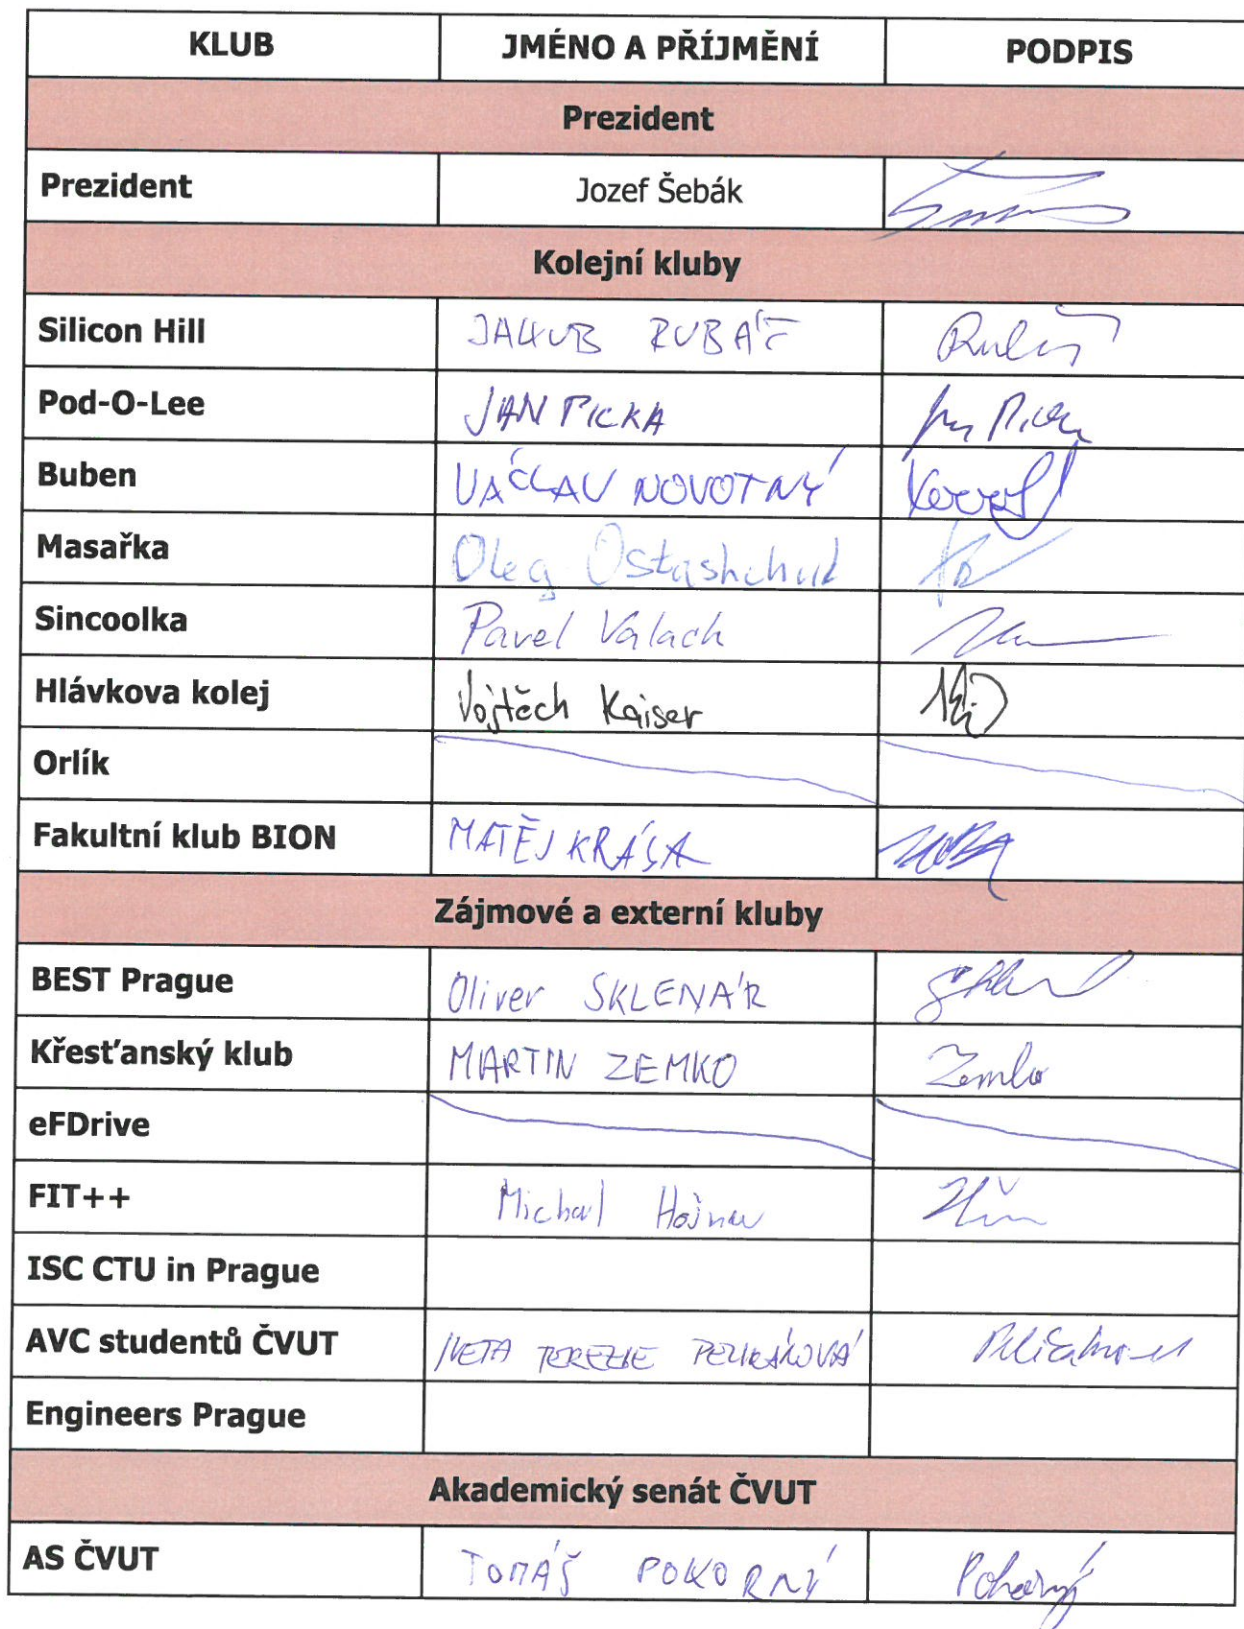 KLUB JMÉNO A PŘÍJMĚNÍ PODPIS
Prezident
Prezident Jozef Šebák
Kolejní kluby
Silicon Hill JAKUB RUBÁŠ
Pod-O-Lee JAN PICKA
Buben VÁCLAV NOVOTNÝ
Masařka Oleg Ostashchuk
Sincoolka Pavel Valach
Hlávkova kolej Vojtěch Kaiser
Orlík
Fakultní klub BION MATĚJ KRÁSA
Zájmové a externí kluby
BEST Prague Oliver SKLENÁR
Křesťanský klub MARTIN ZEMKO Zemko
eFDrive
FIT++ Michal
ISC CTU in Prague
AVC studentů ČVUT IVETA TEREZIE PELIKÁNOVÁ
Engineers Prague
Akademický senát ČVUT
AS ČVUT TOMÁŠ POKORNÝ Pokorný